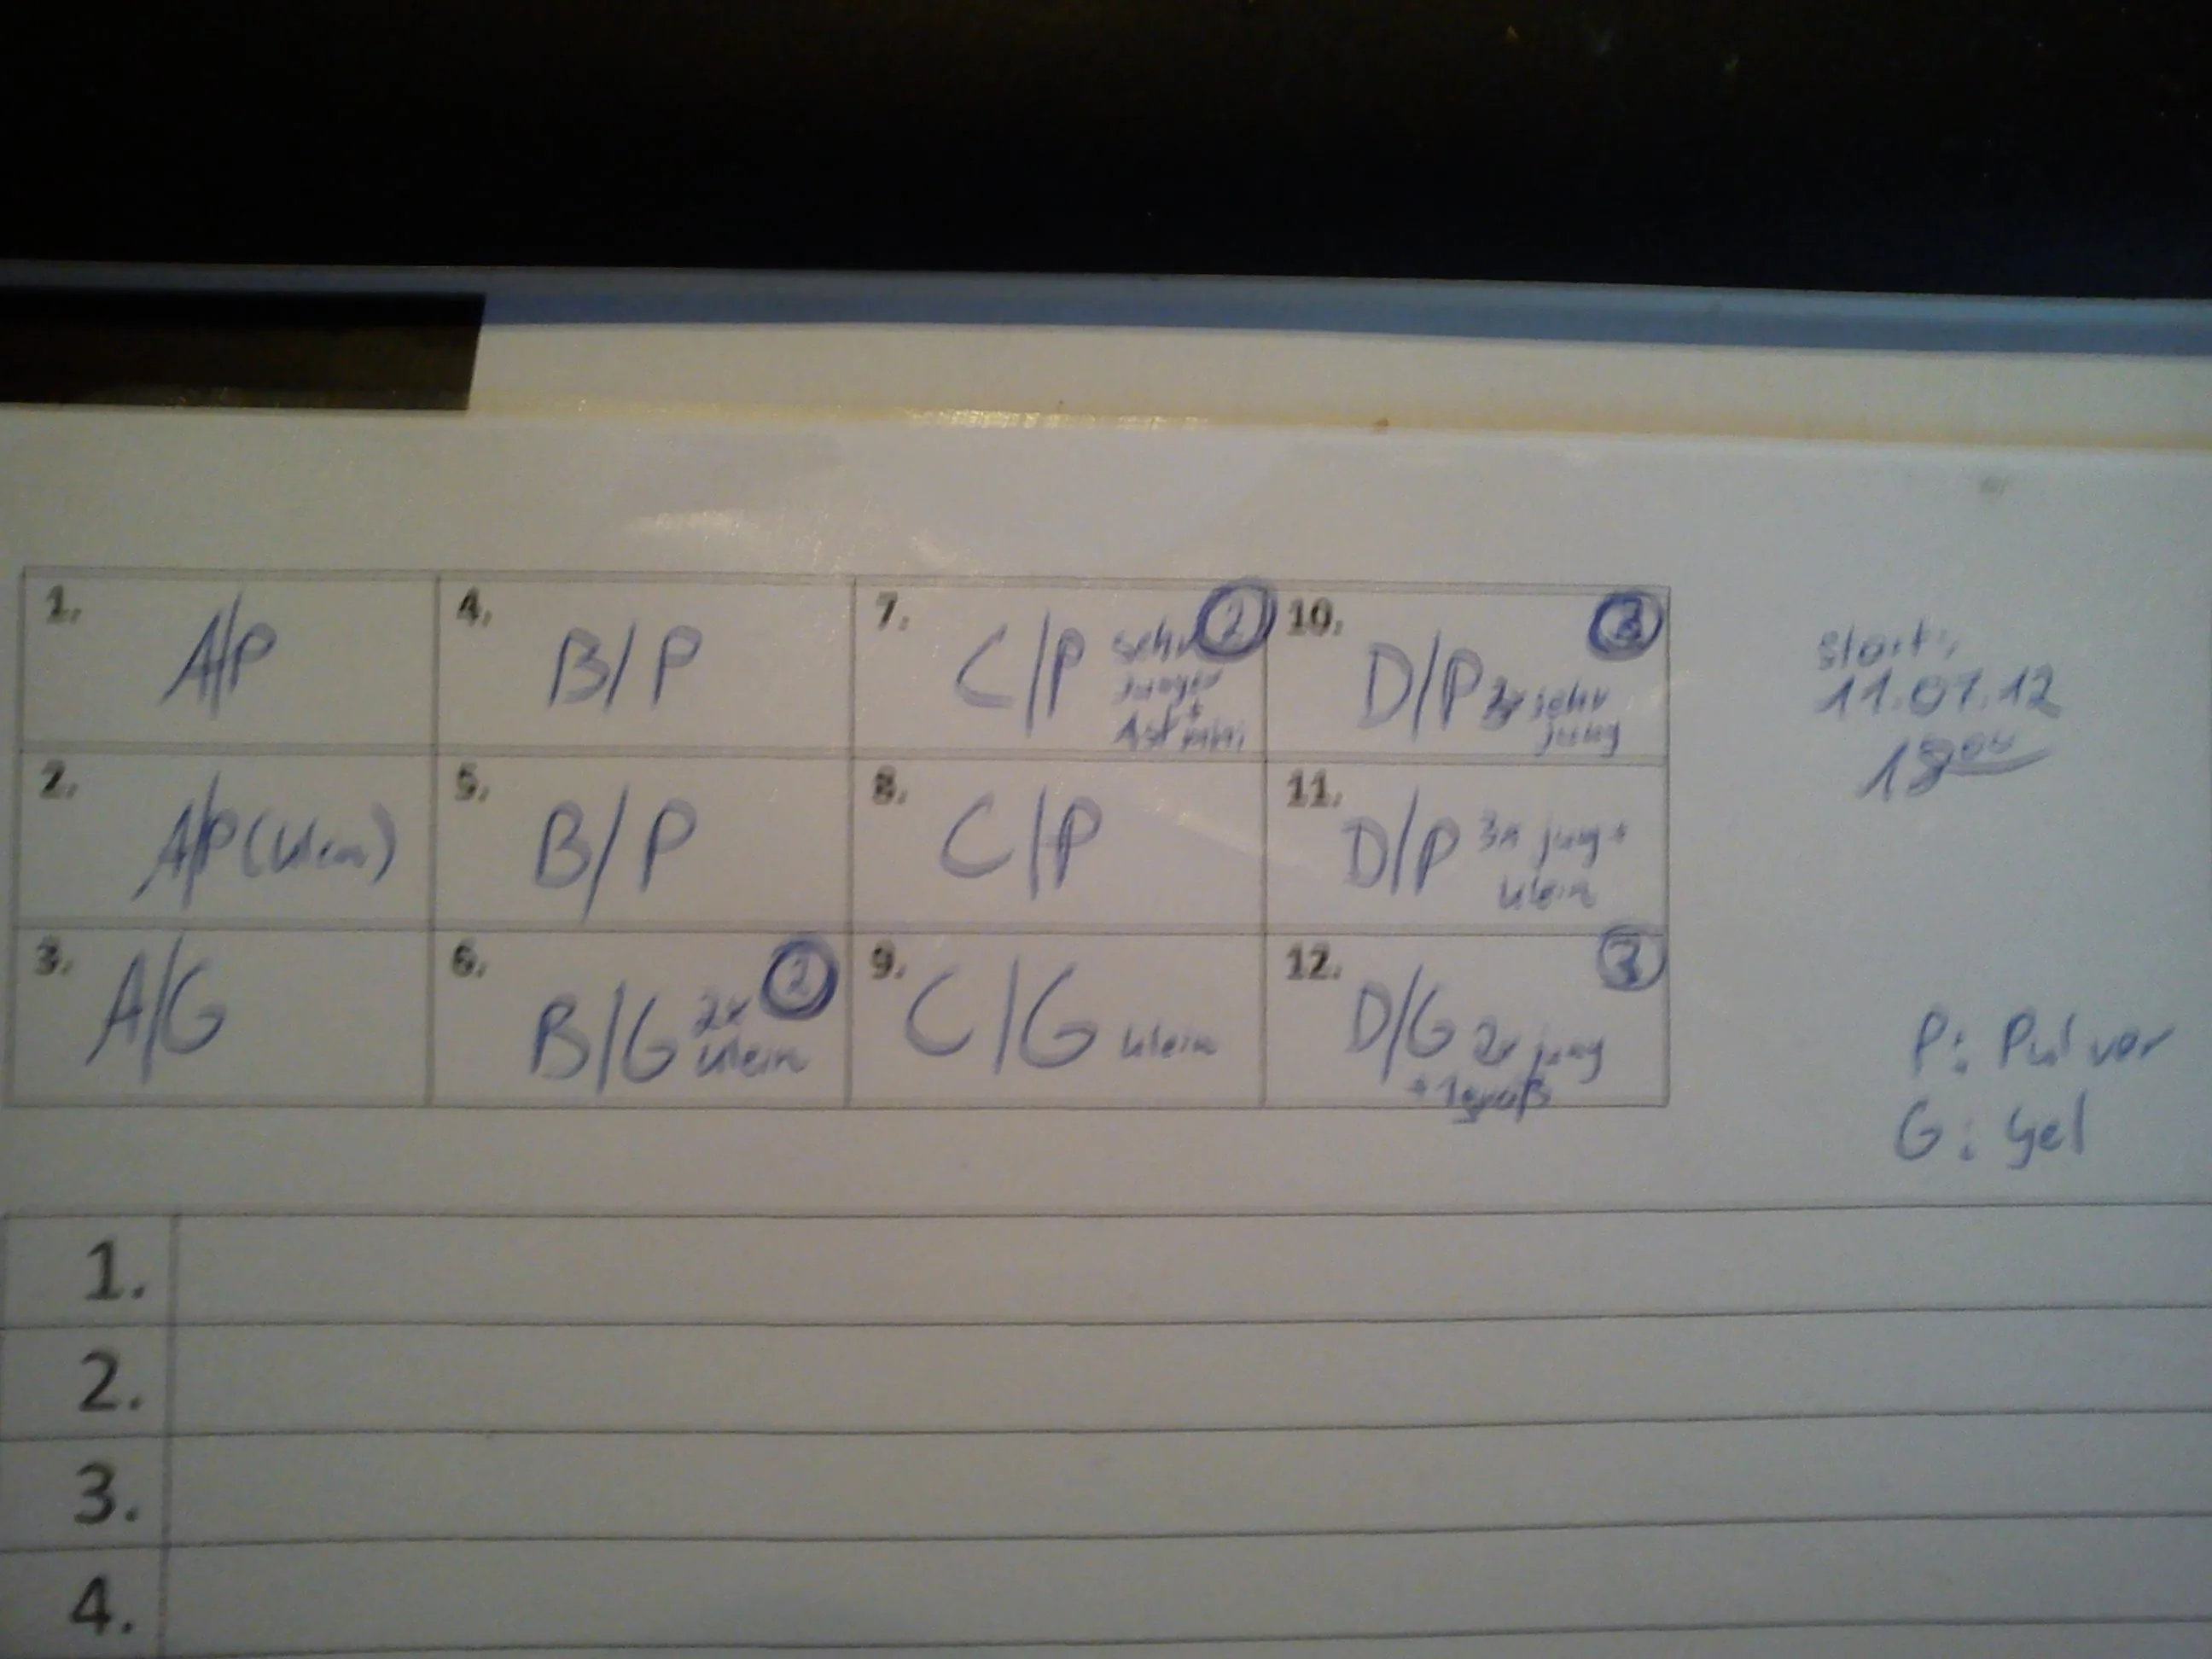 1. A/P
4. B/P
7. C/P sehr 2
junger
Ast + mini
10. D/P sehr 3
jung
start:
11.07.12
18⁰⁰
2. A/P (klein)
5. B/P
8. C/P
11. D/P 3x jung +
klein
3. A/G
6. B/G 2x 2
klein
9. C/G klein
12. D/G 2x jung 3
+ 1 groß
P: Pulver
G: Gel
1.
2.
3.
4.